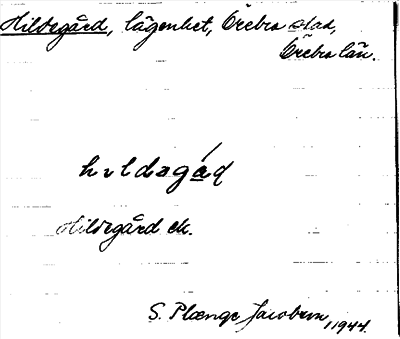 Hildegård, lägenhet, Örebro stad,
Örebro län.
Hildegård
S. Plænge Jacobsen
1944.